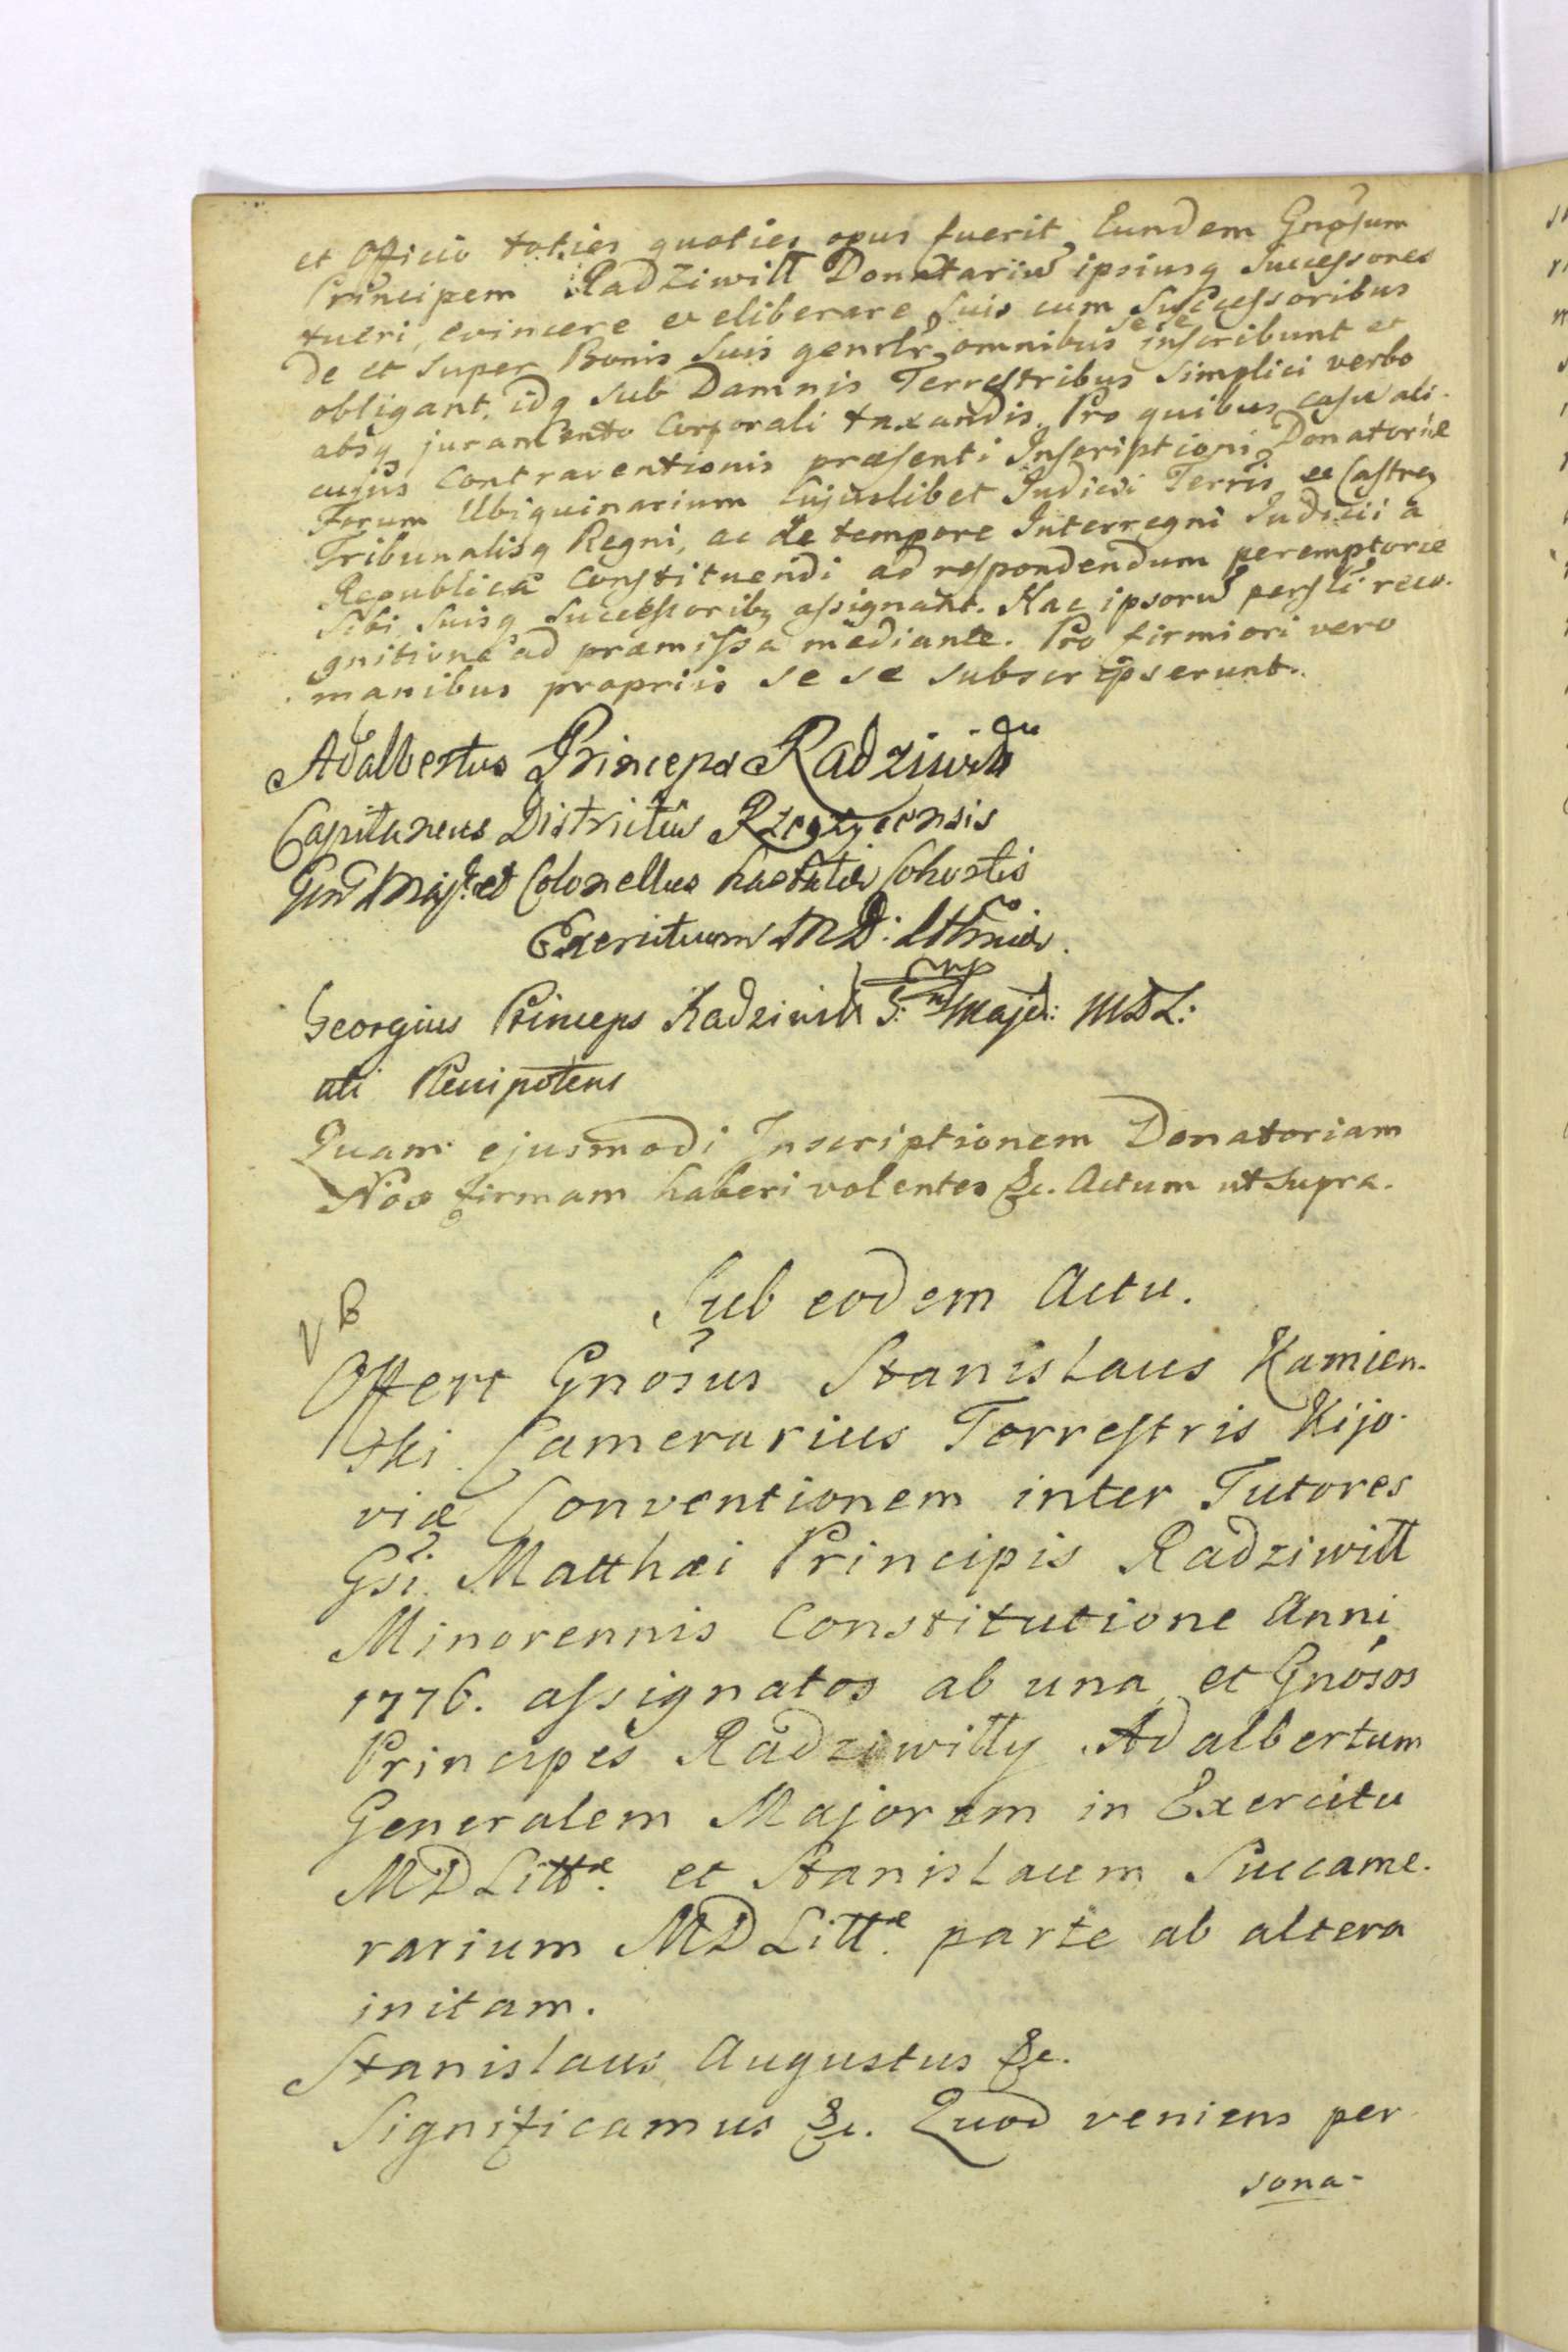 et Officio toties quoties opus fuerit, Eundem Gnosum
Principem Radziwiłł Donatariũ ipsiusq Successores
tueri, evincere et eliberare suis cum Successoribus
de et super Bonis suis genrlr omnibus sese inscribunt et
obligant, idq sub Damnis Terrestribus simplici verbo
absq juramento Corporali taxandis. Pro quibus casu ali-
cujus Contraventionis præsenti Inscriptioni Donatoriæ
Forum Ubiquinarium Cujuslibet Judicii Terris et Castren
Tribunalisq Regni, ac de tempore Interregni Judicii a
Republica Constituendi ad respondendum peremptorie
Sibi Suisq Successoribq assignant. Hac ipsorũ persli reco-
gnitione ad præmissa mediante. Pro firmiori vero
manibus propriis se se subscripserunt.
Adalbertus Princeps Radziwiłł
Capitaneus Districtûs Rzeczycensis
Gnl Maj. et Colonellus hastatæ Cohortis
Exercituum M D: Lthniæ.
Georgius Princeps Radziwiłł Majd: MDL:
uti Plenipotens
Quam ejusmodi Inscriptionem Donatoriam
Nos firmam haberi volentes &c. Actum ut supra.
Sub eodem Actu.
VB
Offert Gnosus Stanislaus Kamien-
ski Camerarius Terrestris Kijo-
viæ Conventionem inter Tutores
Gsi Matthæi Principis Radziwiłł
Minorennis Constitutione Anni
1776. assignatos ab una et Gnosos
Principes Radziwiłły Adalbertum
Generalem Majorem in Exercitu
MD Littæ. et Stanislaum Succame-
rarium MD Littæ. parte ab altera
initam.
Stanislaus Augustus &c.
Significamus &c. Quod veniens per
sona-